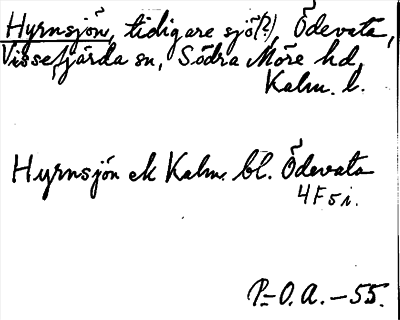 Hyrnsjön, tidigare sjö(?), Ödevata,
Vissefjärda sn, Södra Möre hd,
Kalm. l.
Hyrnsjön ek Kalm. bl. Ödevata
4F5i.
P-O.A.-55.